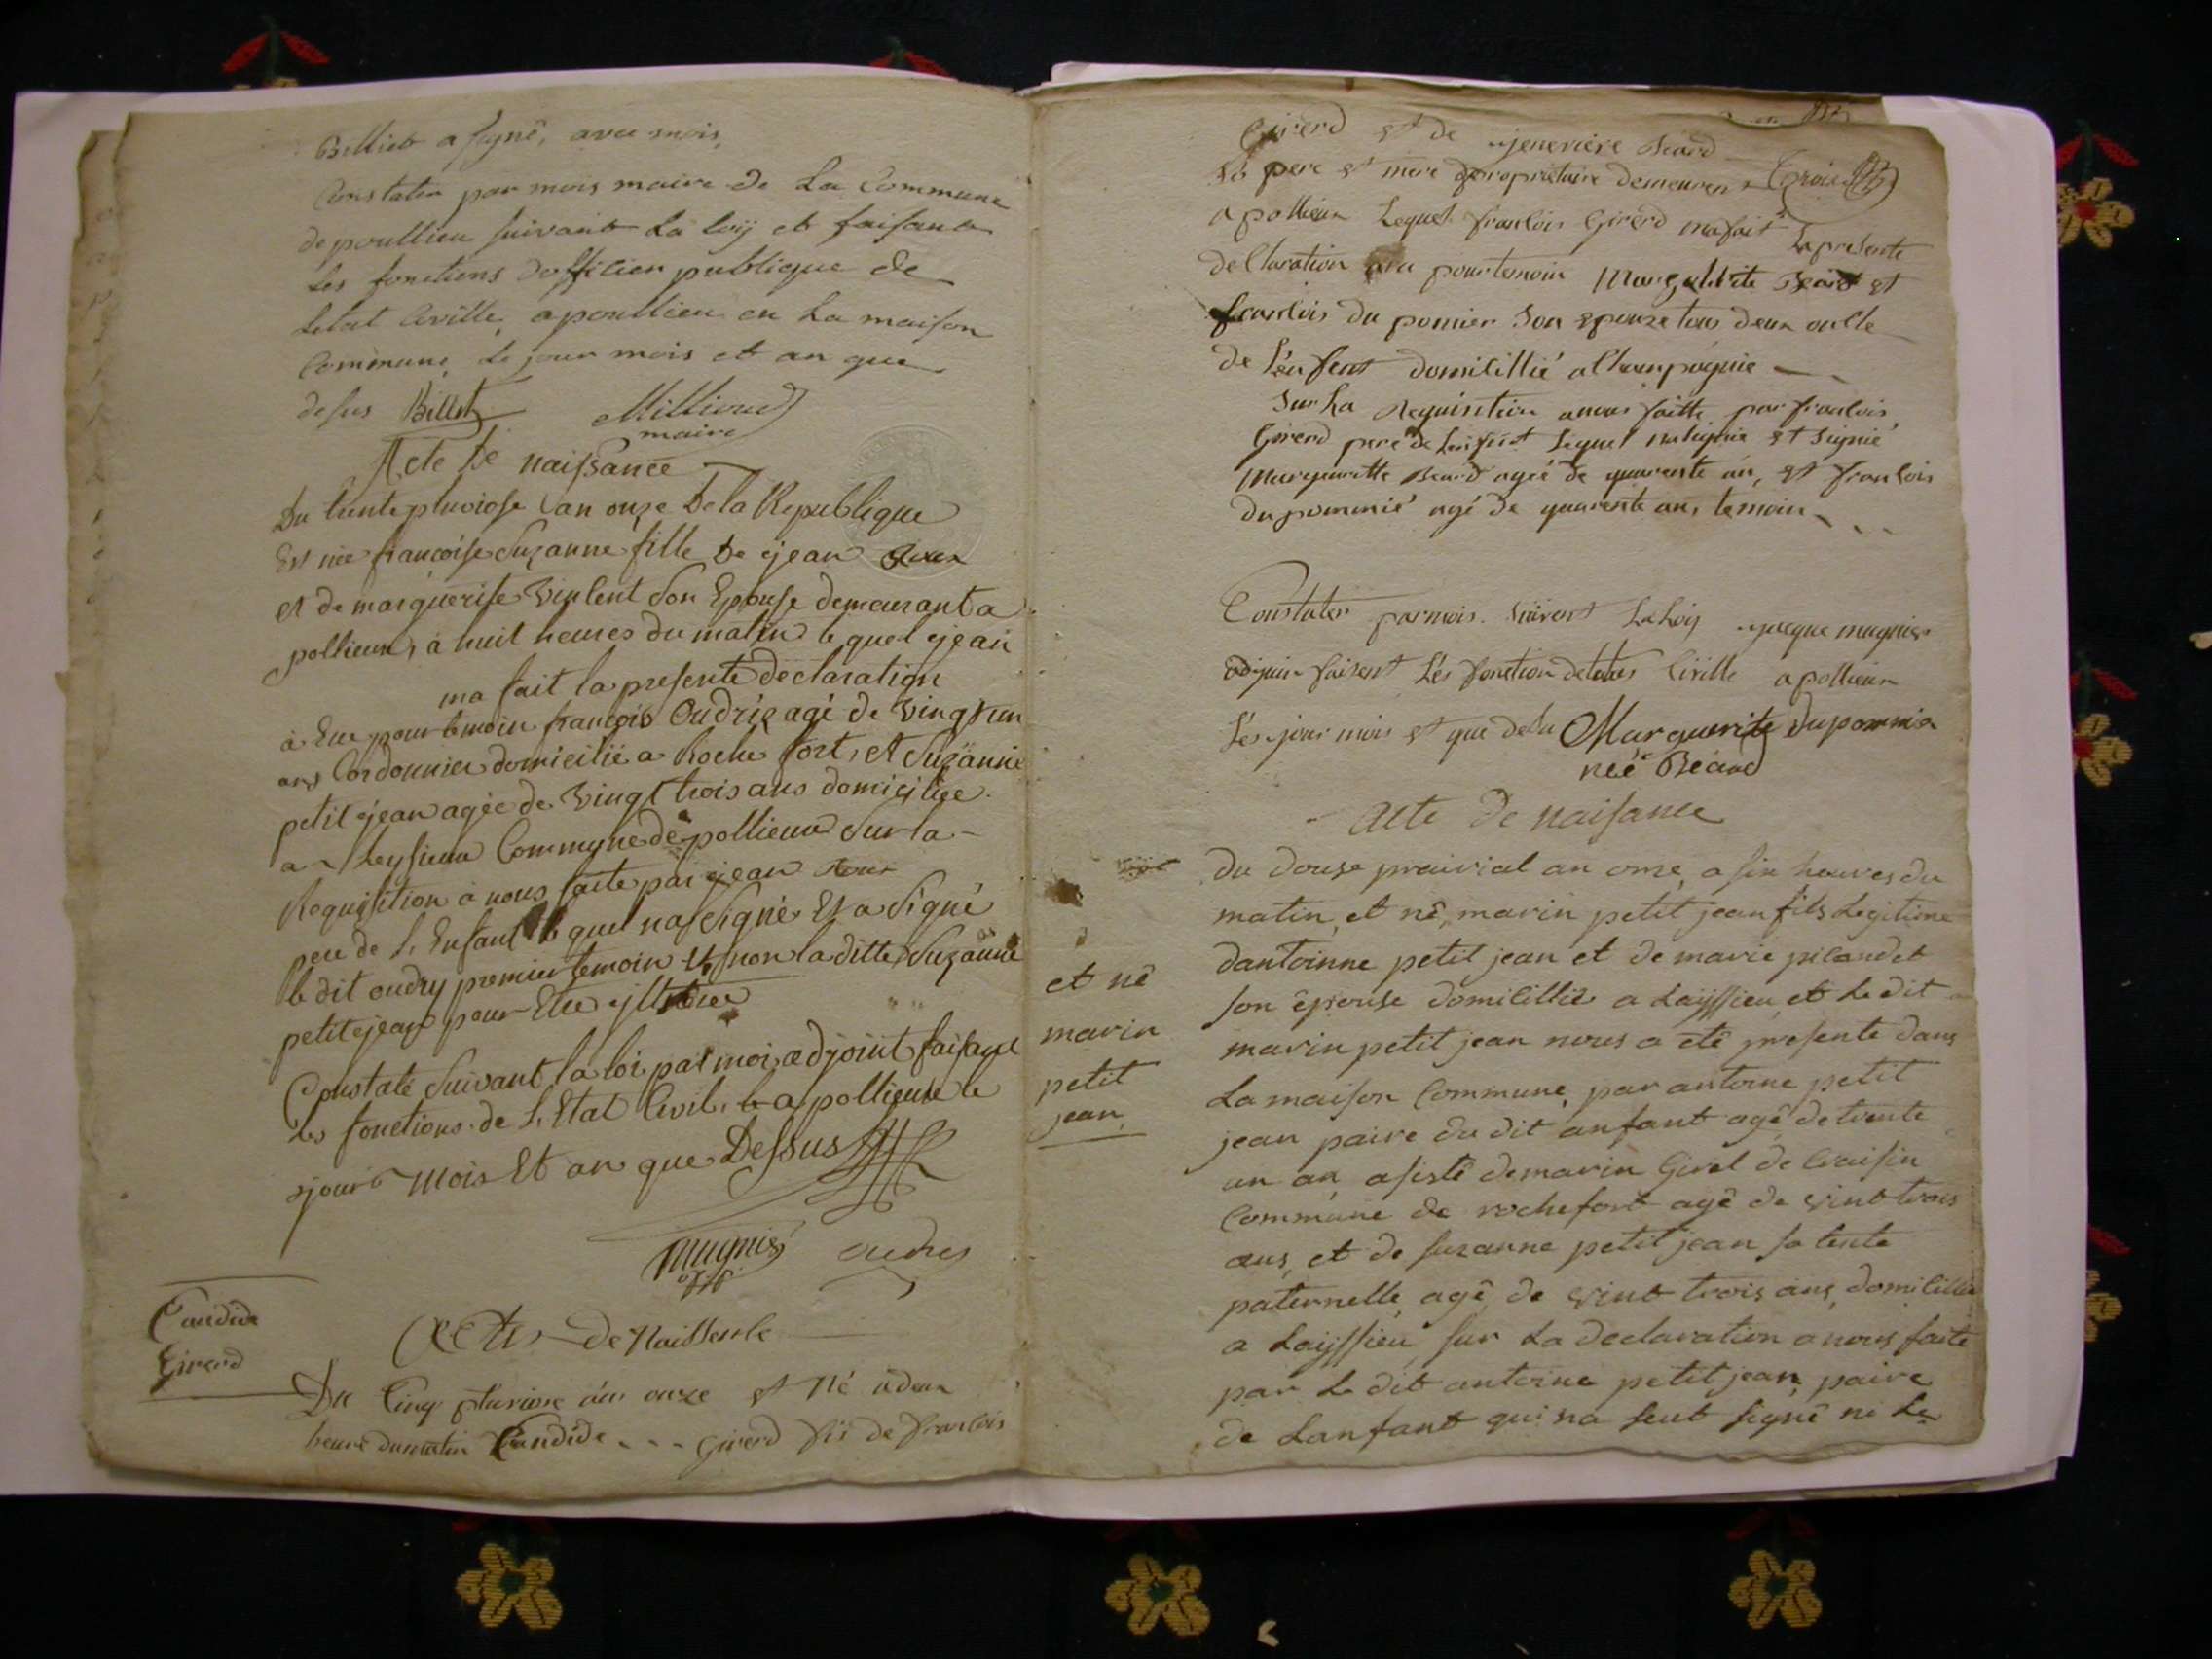 Billiet a signé, avec mois,
Constater par mois maire de La Commune
de poullieu suivant La loÿ et faisant
Les fonctions dofficier publique de
Letat Civille, a poullieu en La maison
Commune, Le jour mois et an que
desus Billet Millioud
maire
Acte De naissance
Du trente pluviose Lan onze De la Republique
Est née françoise Suzanne fille De jean
et de marguerite Vinsent Son Epouse demeurant a
pollieux, à huit heures du matin le quel jean
ma fait la presente declaration
à Eue pour temoin françois Oudrÿ agé de Vingt un
ans Cordonnier domicilié a Roche fort, et Suzanne
petit jean agée de Vingt trois ans domiciliée
a Leysieux Commune de pollieux Sur la
Requisition à nous faite par jean
pere de L'Enfant le quel na Signé Et a Signé
le dit oudry premier temoin et non la ditte Suzanne
petit jean pour Etre illitéree
Constaté Suivant la loi par moi adjoint faisant
les fonctions de L'Etat Civil, a pollieux le
jour mois Et an que Dessus
mugnier oudry
Candide
Girerd
Acte de Naissense
Du Cinq pluviose an onze et Né a deux
heure du matin Candide Girerd fis de franсois
Girerd et de jenevieve Béard
Ses pere et mere propriétaire demeuren
a pollieux Lequel fransois Girerd ma fait La presente
declaration a eu pour temoin Marguerite Béard et
fransois du pomier Son epouze tous deux oncle
de L'enfent domicillié a Champagnie
Sur La Requisition a nous faitte par fransois
Girerd pere de Lenfent Lequel na signie et Signié
Margueritte Béard agée de quarente an, et fransois
du pommié agé de quarente an, temoin
Constater par mois Suivent La Loÿ jacque mugnier
adjoin faisent Les fonction de letat Civille a pollieux
Les jour mois et que desu Marguerite Dupommier
neé Béard
Acte de naisance
et né
marin
petit
jean
du douse prairial an onze, a six heures du
matin, et né, marin petit jean fils Legitime
dantoinne petit jean et de marie pilandet
son épouse domicillié a Laÿssieu, et Le dit
marin petit jean nous a eté presente dans
La maison Commune, par antoine petit
jean paire du dit anfant agé de trente
un an, asisté de marin Girel de Craisin
Commune de rochefort agé de vint trois
ans, et de suzanne petit jean sa tente
paternelle, agé de vint trois ans, domicillié
a Laÿssieu sur La declaration a nous faite
par Le dit antoine petit jean, paire
de Lanfant qui na seut signé ni Le